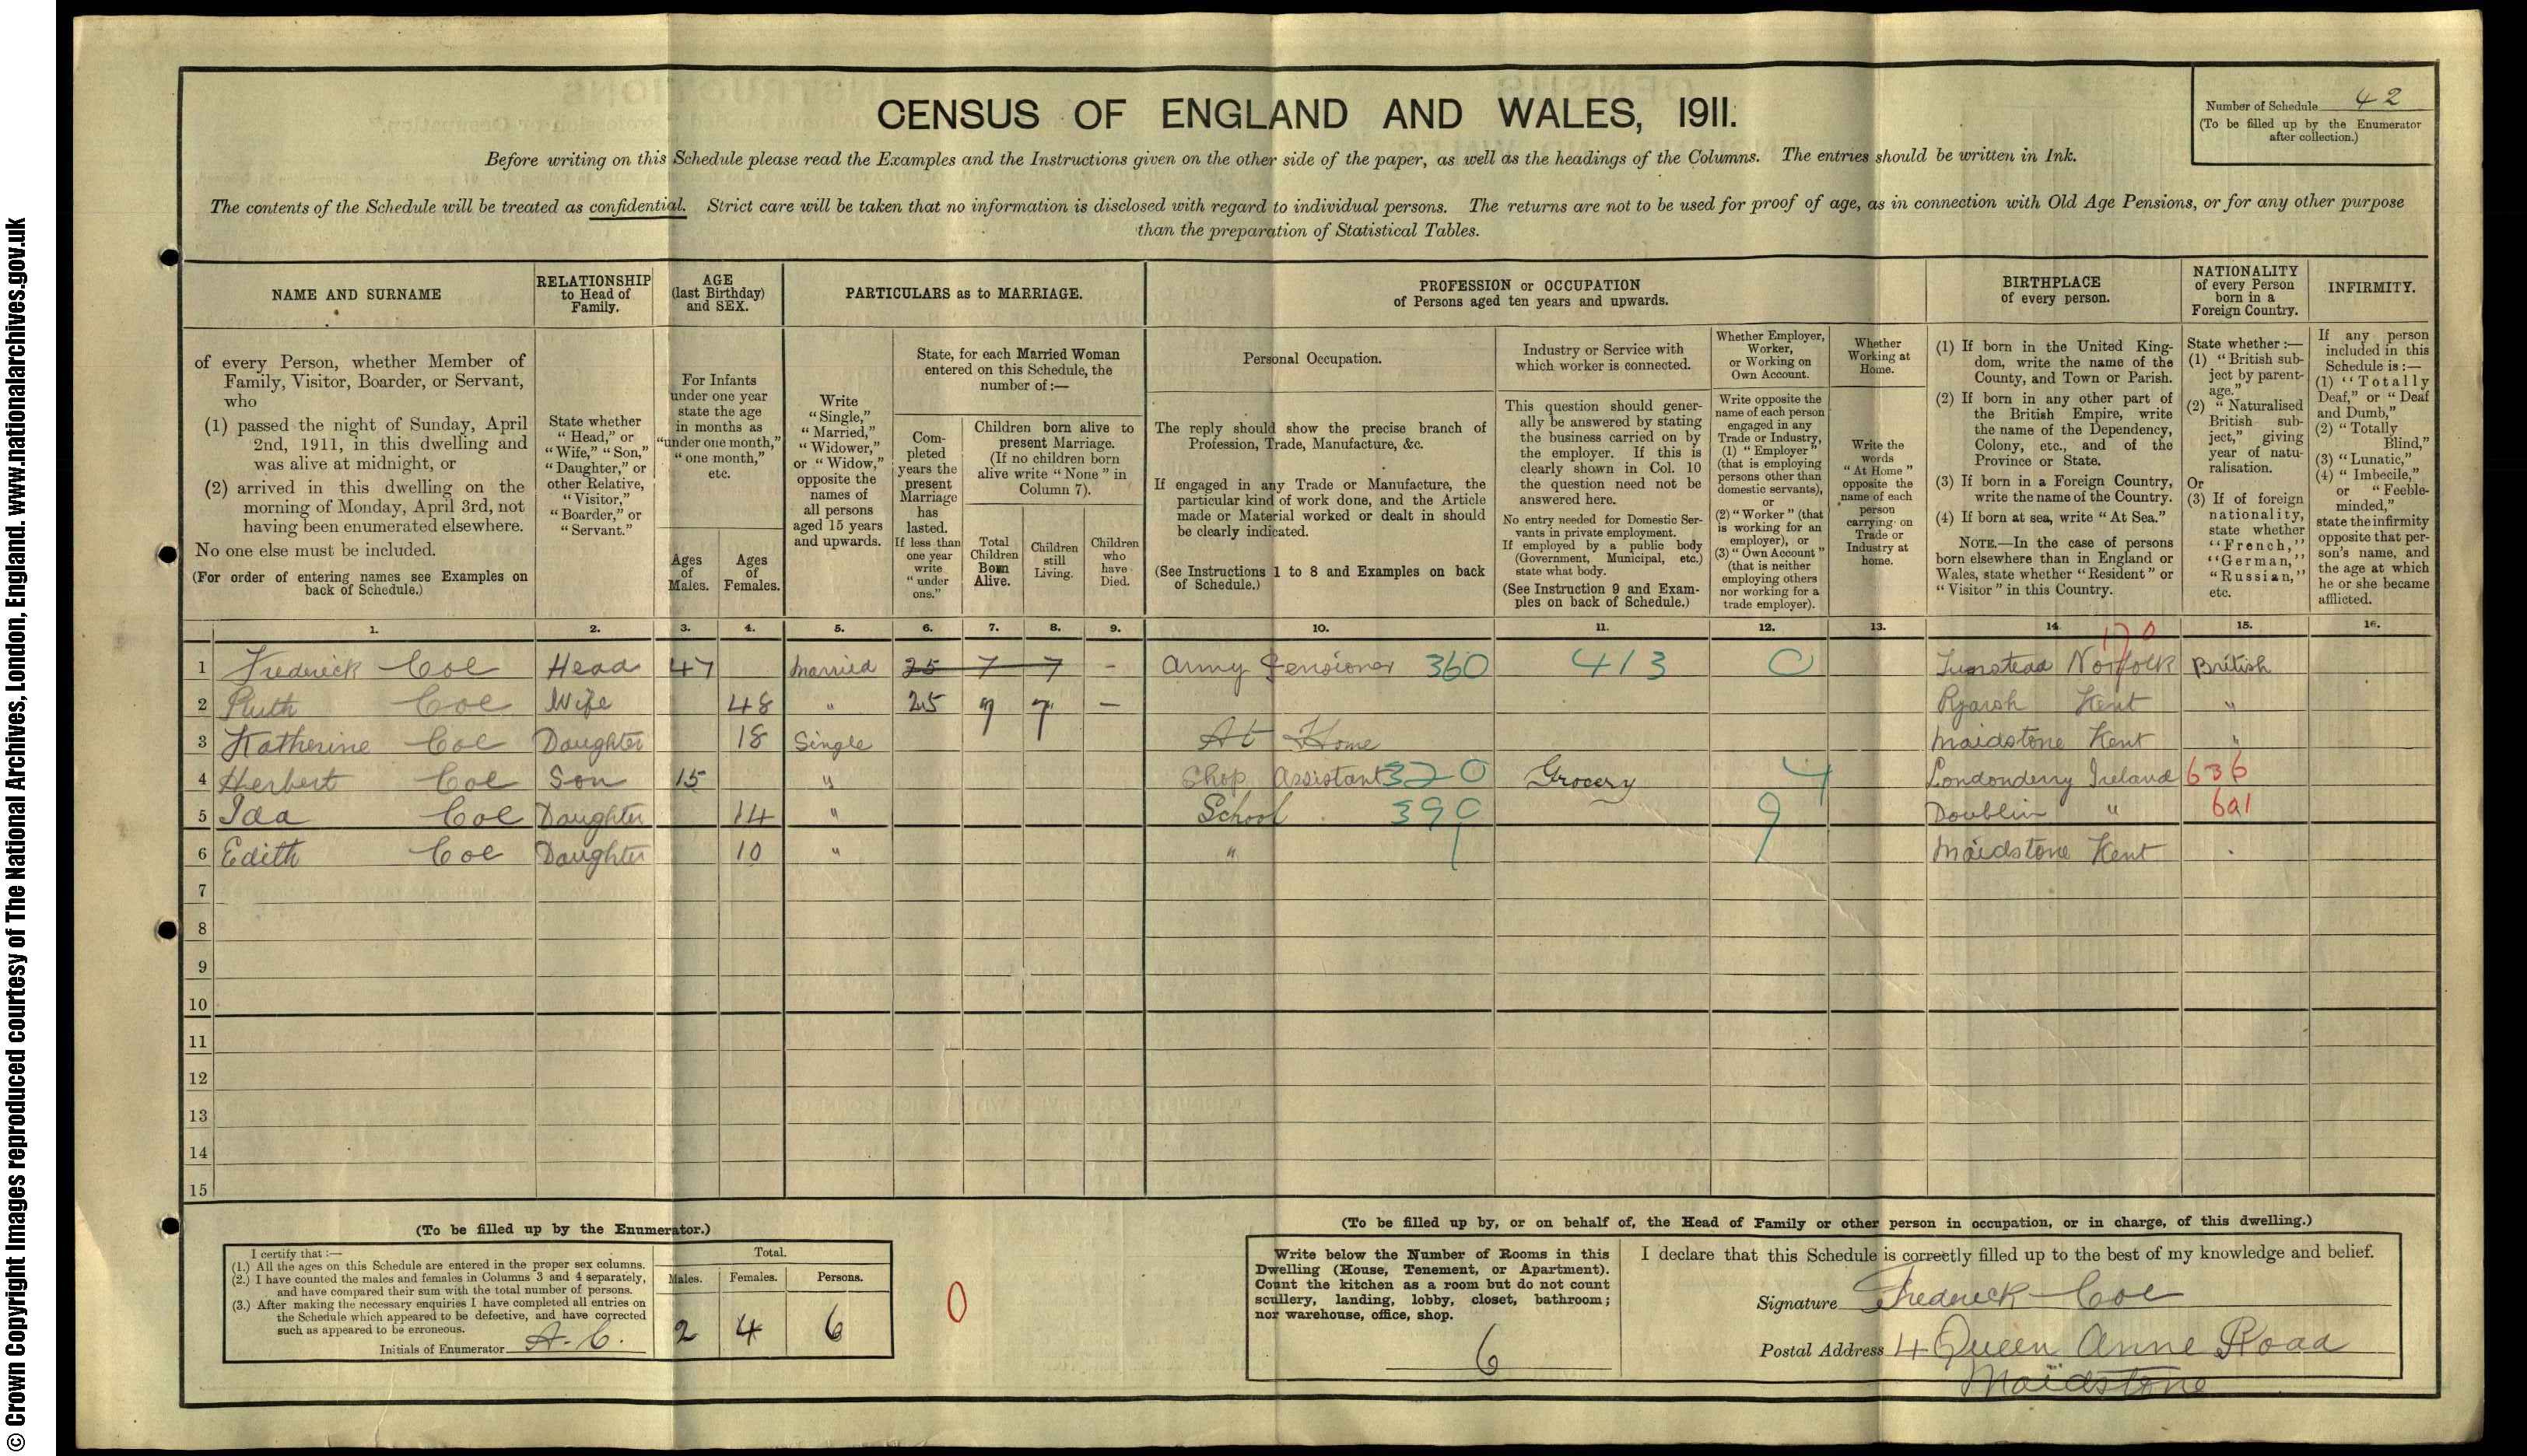 © Crown Copyright Images reproduced courtesy of The National Archives, London, England. www.nationalarchives.gov.uk
CENSUS OF ENGLAND AND WALES, 1911.
Number of Schedule 42
(To be filled up by the Enumerator
after collection.)
Before writing on this Schedule please read the Examples and the Instructions given on the other side of the paper, as well as the headings of the Columns. The entries should be written in Ink.
The contents of the Schedule will be treated as confidential. Strict care will be taken that no information is disclosed with regard to individual persons. The returns are not to be used for proof of age, as in connection with Old Age Pensions, or for any other purpose
than the preparation of Statistical Tables.
NAME AND SURNAME
of every Person, whether Member of
Family, Visitor, Boarder, or Servant,
who
(1) passed the night of Sunday, April
2nd, 1911, in this dwelling and
was alive at midnight, or
(2) arrived in this dwelling on the
morning of Monday, April 3rd, not
having been enumerated elsewhere.
No one else must be included.
(For order of entering names see Examples on
back of Schedule.)
RELATIONSHIP
to Head of
Family.
State whether
"Head," or
"Wife," "Son,"
"Daughter," or
other Relative,
"Visitor,"
"Boarder," or
"Servant."
AGE
(last Birthday)
and SEX.
For Infants
under one year
state the age
in months as
"under one month,"
"one month,"
etc.
Ages
of
Males.
Ages
of
Females.
PARTICULARS as to MARRIAGE.
Write
"Single,"
"Married,"
"Widower,"
or "Widow,"
opposite the
names of
all persons
aged 15 years
and upwards.
State, for each Married Woman
entered on this Schedule, the
number of:—
Com-
pleted
years the
present
Marriage
has
lasted.
If less than
one year
write
"under
one."
Children born alive to
present Marriage.
(If no children born
alive write "None" in
Column 7).
Total
Children
Born
Alive.
Children
still
Living.
Children
who
have
Died.
PROFESSION or OCCUPATION
of Persons aged ten years and upwards.
Personal Occupation.
The reply should show the precise branch of
Profession, Trade, Manufacture, &c.
If engaged in any Trade or Manufacture, the
particular kind of work done, and the Article
made or Material worked or dealt in should
be clearly indicated.
(See Instructions 1 to 8 and Examples on back
of Schedule.)
Industry or Service with
which worker is connected.
This question should gener-
ally be answered by stating
the business carried on by
the employer. If this is
clearly shown in Col. 10
the question need not be
answered here.
No entry needed for Domestic Ser-
vants in private employment.
If employed by a public body
(Government, Municipal, etc.)
state what body.
(See Instruction 9 and Exam-
ples on back of Schedule.)
Whether Employer,
Worker,
or Working on
Own Account.
Write opposite the
name of each person
engaged in any
Trade or Industry,
(1) "Employer"
(that is employing
persons other than
domestic servants),
or
(2) "Worker" (that
is working for an
employer), or
(3) "Own Account"
(that is neither
employing others
nor working for a
trade employer).
Whether
Working at
Home.
Write the
words
"At Home"
opposite the
name of each
person
carrying on
Trade or
Industry at
home.
BIRTHPLACE
of every person.
(1) If born in the United King-
dom, write the name of the
County, and Town or Parish.
(2) If born in any other part of
the British Empire, write
the name of the Dependency,
Colony, etc., and of the
Province or State.
(3) If born in a Foreign Country,
write the name of the Country.
(4) If born at sea, write "At Sea."
NOTE.—In the case of persons
born elsewhere than in England or
Wales, state whether "Resident" or
"Visitor" in this Country.
NATIONALITY
of every Person
born in a
Foreign Country.
State whether:—
(1) "British sub-
ject by parent-
age."
(2) "Naturalised
British sub-
ject," giving
year of natu-
ralisation.
Or
(3) If of foreign
nationality,
state whether
"French,"
"German,"
"Russian,"
etc.
INFIRMITY.
If any person
included in this
Schedule is:—
(1) "Totally
Deaf," or "Deaf
and Dumb,"
(2) "Totally
Blind,"
(3) "Lunatic,"
(4) "Imbecile,"
or "Feeble-
minded,"
state the infirmity
opposite that per-
son's name, and
the age at which
he or she became
afflicted.
1. 2. 3. 4. 5. 6. 7. 8. 9. 10. 11. 12. 13. 14. 15. 16.
170
1 Frederick Coe Head 47 Married 25 7 7 - Army Pensioner 360 413 0 Tunstead Norfolk British
2 Ruth Coe Wife 48 " 25 7 7 — Ryarsh Kent "
3 Katherine Coe Daughter 18 Single At Home Maidstone Kent "
4 Herbert Coe Son 15 " Shop Assistant 320 Grocery 4 Londonderry Ireland 636
5 Ida Coe Daughter 14 " School 390 9 Doublin " 621
6 Edith Coe Daughter 10 " " Maidstone Kent
7
8
9
10
11
12
13
14
15
(To be filled up by the Enumerator.)
I certify that:—
(1.) All the ages on this Schedule are entered in the proper sex columns.
(2.) I have counted the males and females in Columns 3 and 4 separately,
and have compared their sum with the total number of persons.
(3.) After making the necessary enquiries I have completed all entries on
the Schedule which appeared to be defective, and have corrected
such as appeared to be erroneous.
Initials of Enumerator A.C.
Total.
Males. Females. Persons.
2 4 6
0
(To be filled up by, or on behalf of, the Head of Family or other person in occupation, or in charge, of this dwelling.)
Write below the Number of Rooms in this
Dwelling (House, Tenement, or Apartment).
Count the kitchen as a room but do not count
scullery, landing, lobby, closet, bathroom;
nor warehouse, office, shop.
6
I declare that this Schedule is correctly filled up to the best of my knowledge and belief.
Signature Frederick Coe
Postal Address 4 Queen Anne Road
Maidstone